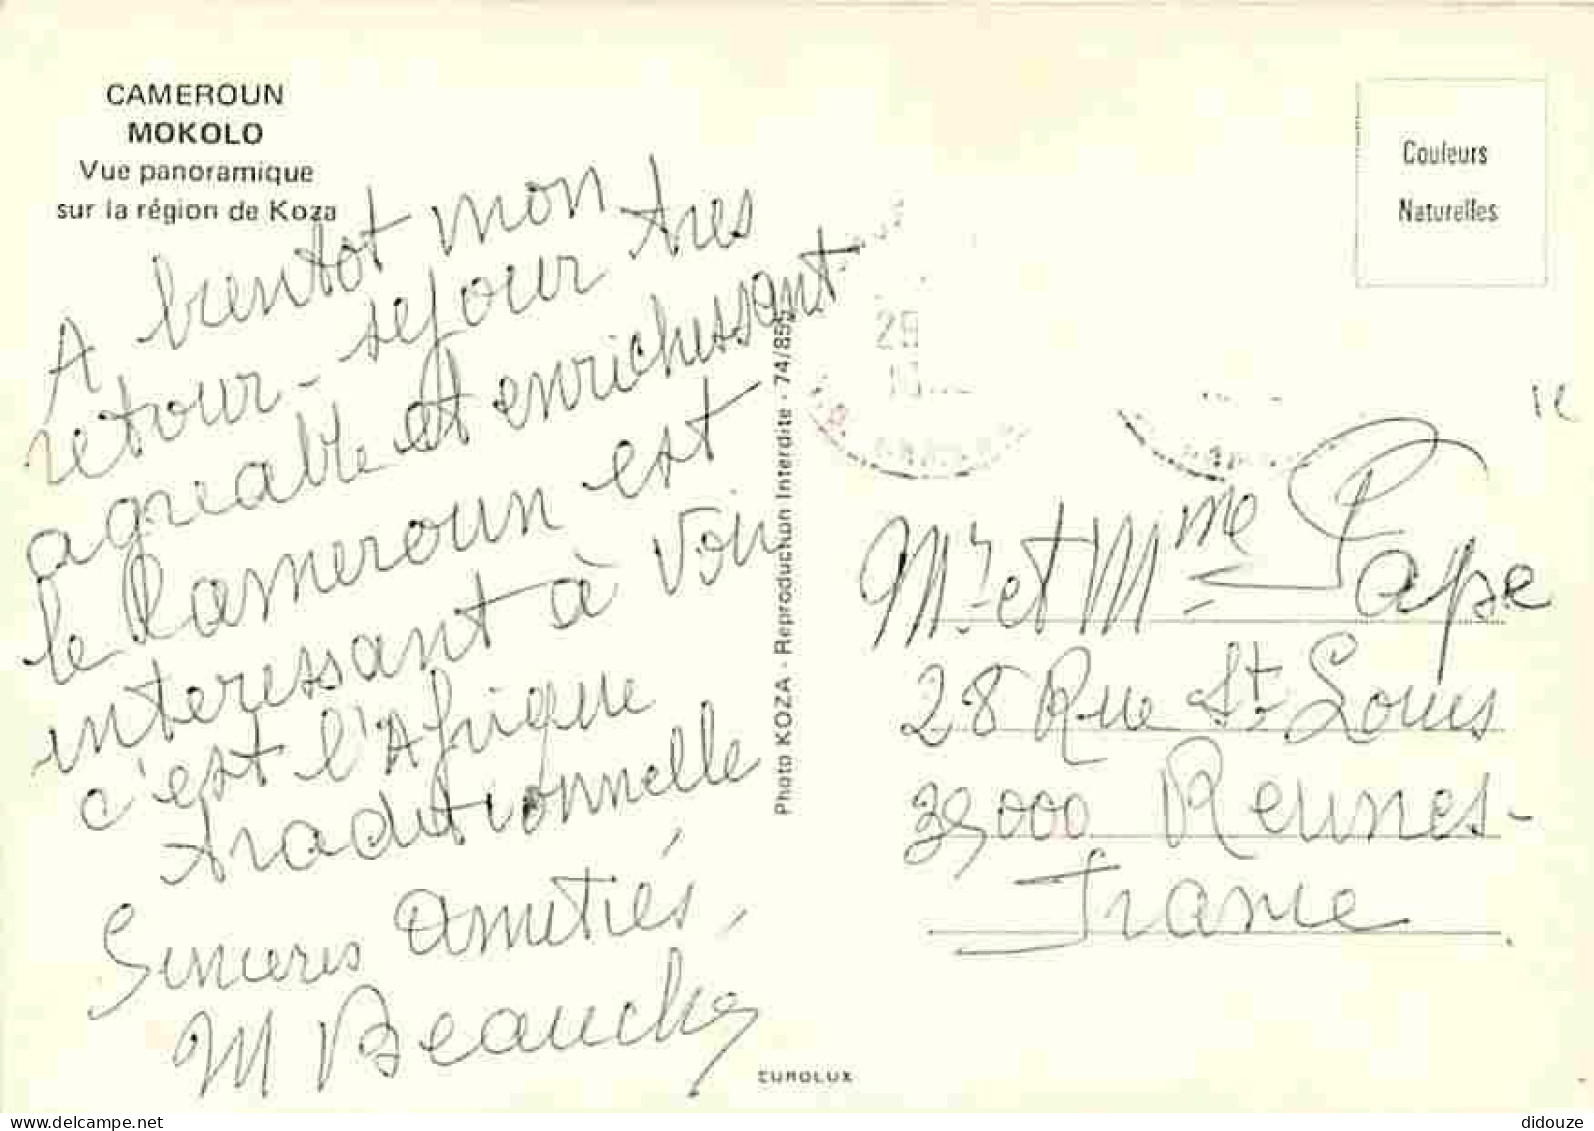 CAMEROUN
MOKOLO
Vue panoramique
sur la région de Koza
A bientot mon
retour - sejour tres
agreable et enrichissant
le Cameroun est
interessant à voir
c'est l'Afrique
traditionnelle
Sinceres amitiés,
M Beauchy
Photo KOZA - Reproduction Interdite - 74/855
EUROLUX
Couleurs
Naturelles
25
Mr. et Mme Pape
28 Rue St. Louis
35000 Rennes -
France.
delcampe.net
didouze